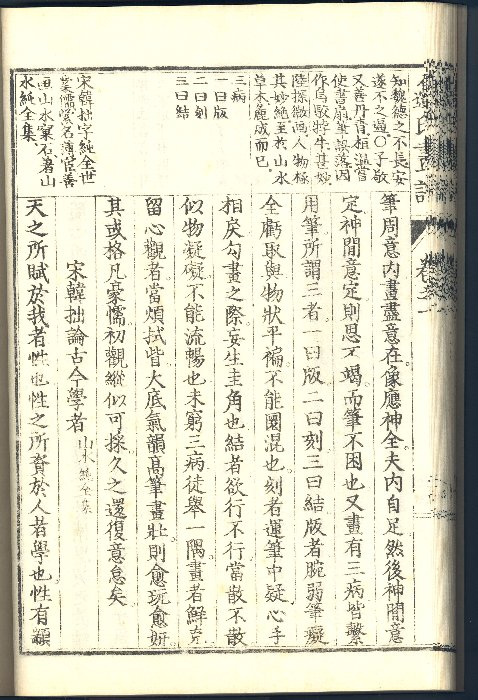 知魏德之不長安
遂不之過〇子敬
又善丹青桓溫嘗
使書扇墨誤落因
作烏駁牸牛甚妙
陸探微画人物極
其妙絶至於山水
草木麁成而已
三病
一曰版
二曰刻
三曰結
宋韓拙字純全世
業儒為名簿官善
画山水窠石著山
水純全集
筆周意内畫盡意在像應神全夫内自足然後神閒意
定神閒意定則思不竭而筆不困也又畫有三病皆繫
用筆所謂三者一曰版二曰刻三曰結版者腕弱筆癡
全虧取與物狀平褊不能圜混也刻者運筆中疑心手
相戾勾畫之際妄生圭角也結者欲行不行當散不散
似物凝礙不能流暢也未窮三病徒舉一隅畫者鮮克
留心觀者當煩拭眥大底氣韻高筆畫壯則愈玩愈妍
其或格凡豪懦初觀縱似可採久之還復意怠矣
宋韓拙論古今學者 山水純全集
天之所賦於我者性也性之所資於人者學也性有顓